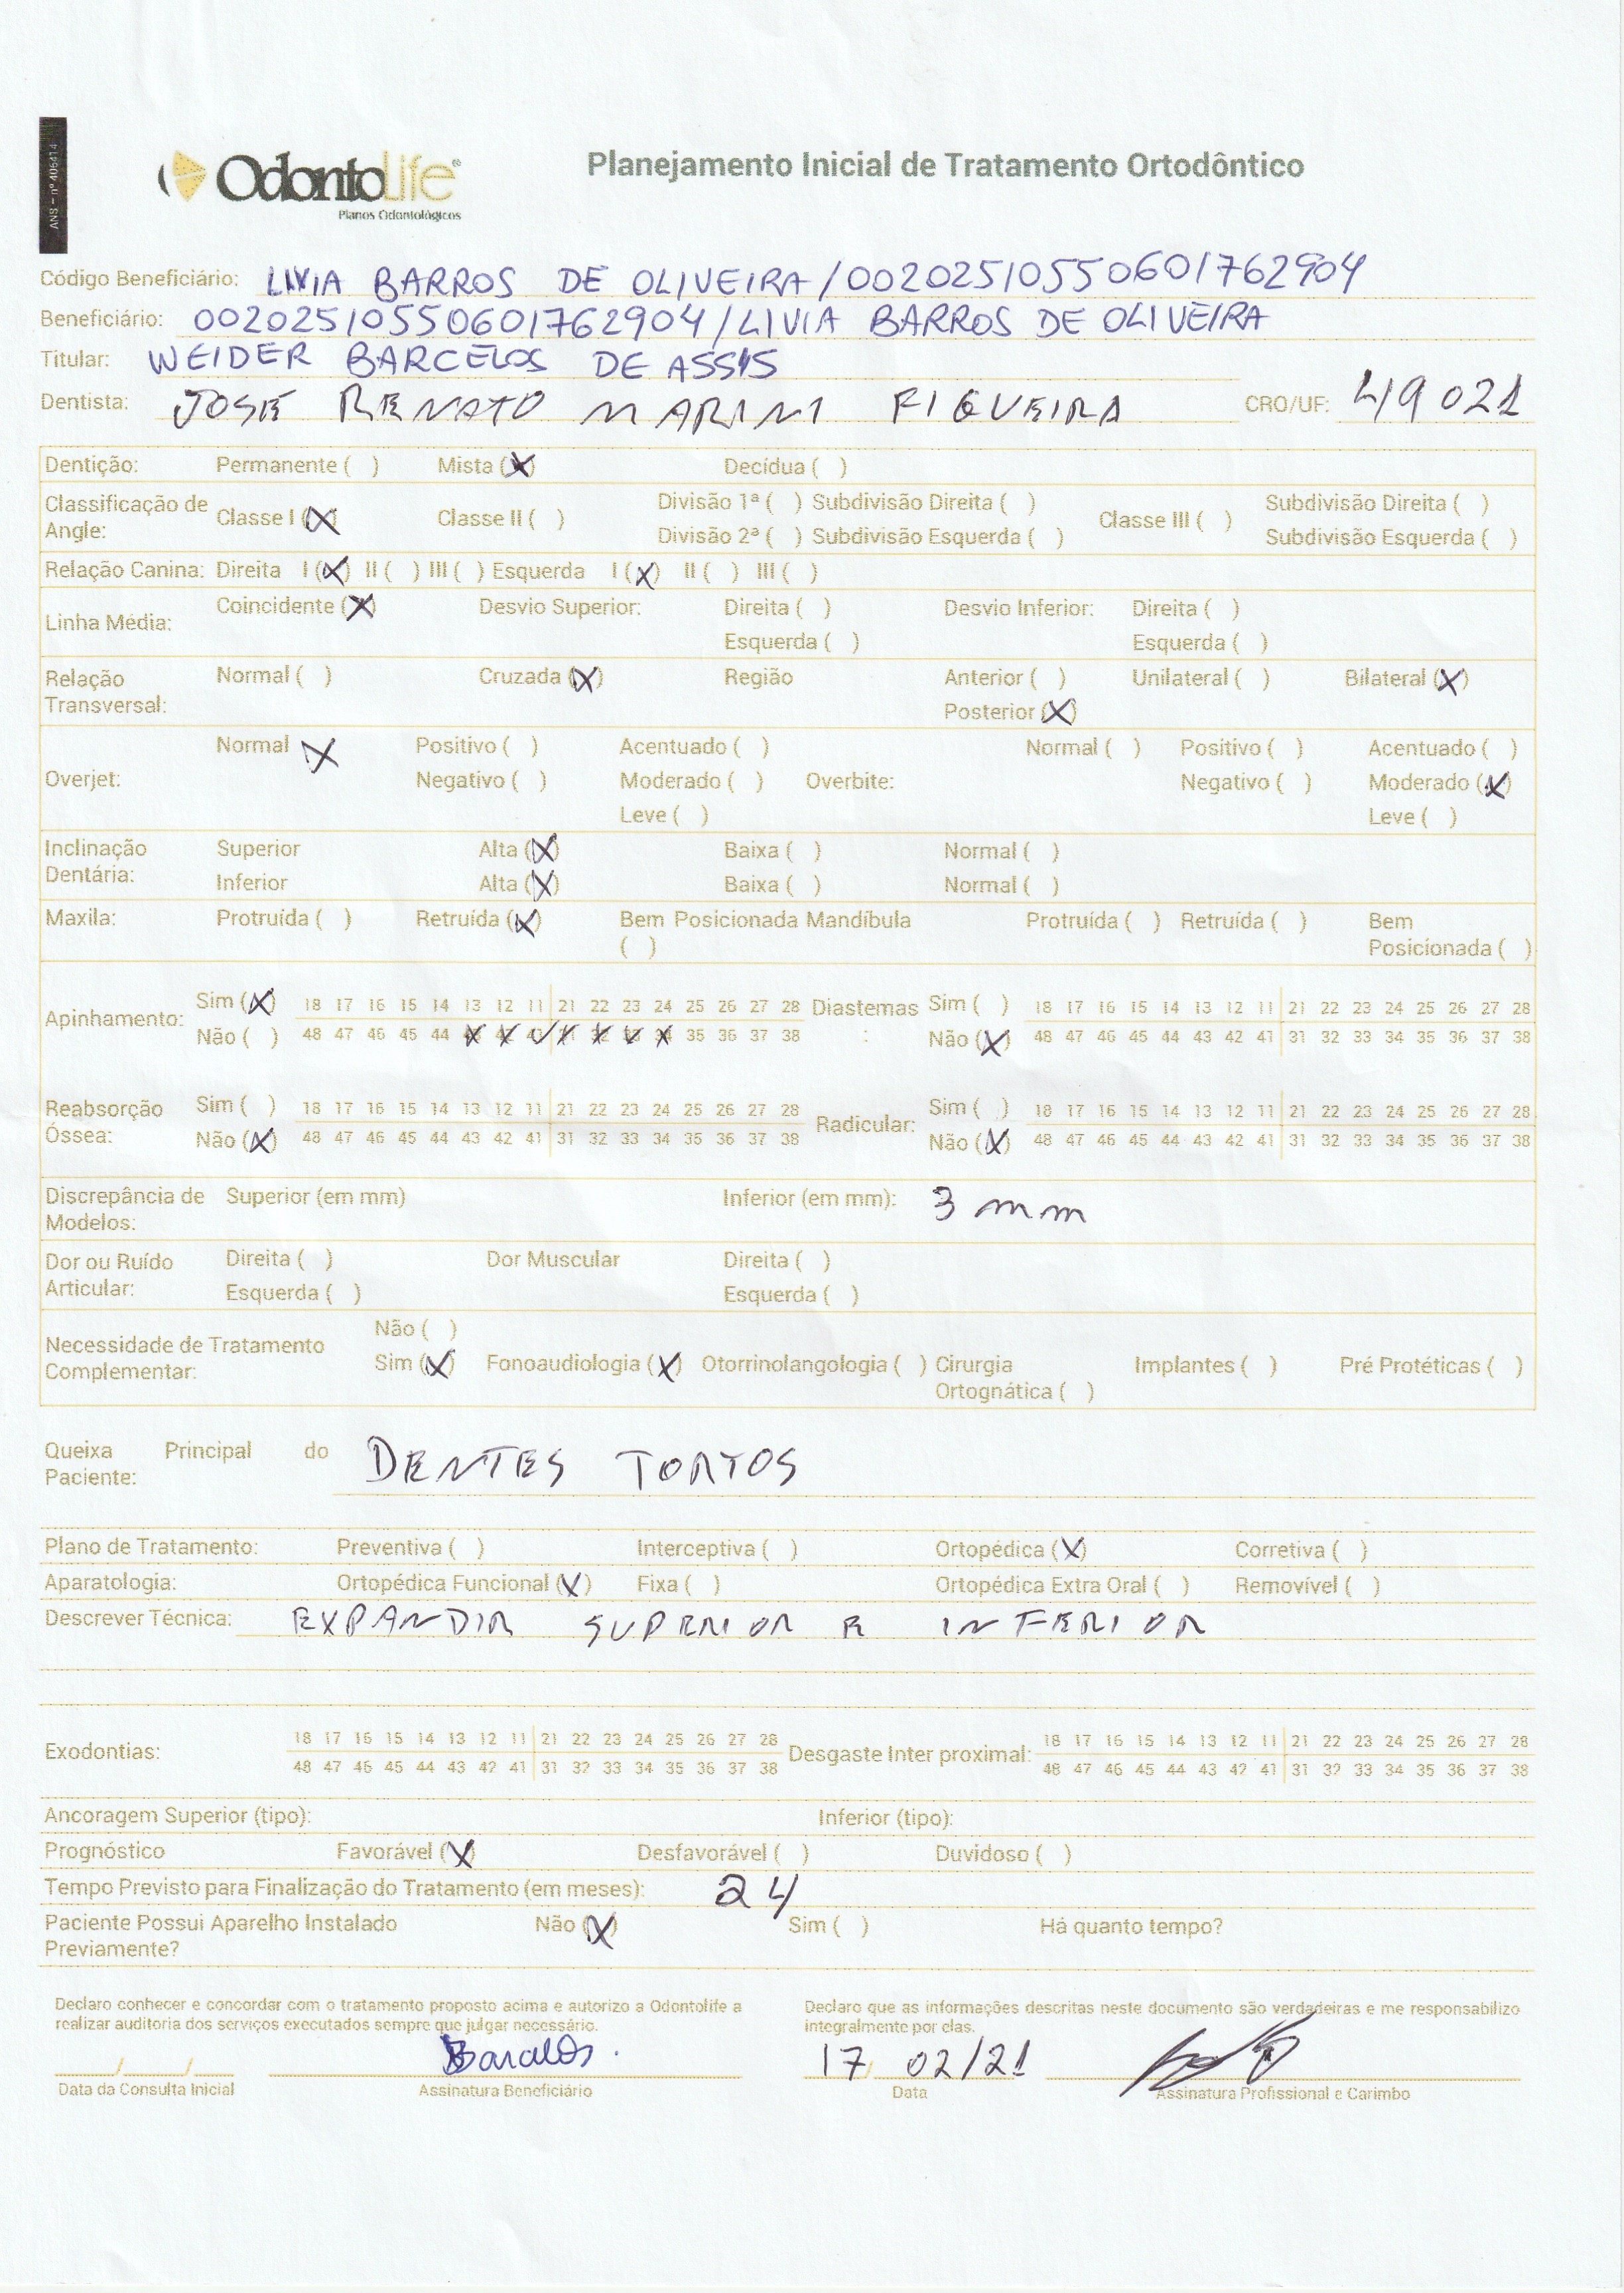 ANS - nº 406414
OdontoLife®
Planos Odontológicos
Planejamento Inicial de Tratamento Ortodôntico
Código Beneficiário: LIVIA BARROS DE OLIVEIRA/00202510550601762904
Beneficiário: 00202510550601762904/LIVIA BARROS DE OLIVEIRA
Titular: WEIDER BARCELOS DE ASSIS
Dentista: JOSE RENATO MARINI FIGUEIRA CRO/UF: 49021
Dentição: Permanente ( ) Mista (X) Decídua ( )
Classificação de Angle: Classe I (X) Classe II ( ) Divisão 1ª ( ) Subdivisão Direita ( ) Classe III ( ) Subdivisão Direita ( )
Divisão 2ª ( ) Subdivisão Esquerda ( ) Subdivisão Esquerda ( )
Relação Canina: Direita I (X) II ( ) III ( ) Esquerda I (X) II ( ) III ( )
Linha Média: Coincidente (X) Desvio Superior: Direita ( ) Desvio Inferior: Direita ( )
Esquerda ( ) Esquerda ( )
Relação Transversal: Normal ( ) Cruzada (X) Região Anterior ( ) Unilateral ( ) Bilateral (X)
Posterior (X)
Overjet: Normal X Positivo ( ) Acentuado ( ) Overbite: Normal ( ) Positivo ( ) Acentuado ( )
Negativo ( ) Moderado ( ) Negativo ( ) Moderado (X)
Leve ( ) Leve ( )
Inclinação Dentária: Superior Alta (X) Baixa ( ) Normal ( )
Inferior Alta (X) Baixa ( ) Normal ( )
Maxila: Protruída ( ) Retruída (X) Bem Posicionada ( ) Mandíbula Protruída ( ) Retruída ( ) Bem Posicionada ( )
Apinhamento: Sim (X) 18 17 16 15 14 13 12 11 21 22 23 24 25 26 27 28 Diastemas : Sim ( ) 18 17 16 15 14 13 12 11 21 22 23 24 25 26 27 28
Não ( ) 48 47 46 45 44 43 42 41 31 32 33 34 35 36 37 38 Não (X) 48 47 46 45 44 43 42 41 31 32 33 34 35 36 37 38
Reabsorção Óssea: Sim ( ) 18 17 16 15 14 13 12 11 21 22 23 24 25 26 27 28 Radicular: Sim ( ) 18 17 16 15 14 13 12 11 21 22 23 24 25 26 27 28
Não (X) 48 47 46 45 44 43 42 41 31 32 33 34 35 36 37 38 Não (X) 48 47 46 45 44 43 42 41 31 32 33 34 35 36 37 38
Discrepância de Modelos: Superior (em mm) Inferior (em mm): 3 mm
Dor ou Ruído Articular: Direita ( ) Dor Muscular Direita ( )
Esquerda ( ) Esquerda ( )
Necessidade de Tratamento Complementar: Não ( )
Sim (X) Fonoaudiologia (X) Otorrinolangologia ( ) Cirurgia Ortognática ( ) Implantes ( ) Pré Protéticas ( )
Queixa Principal do Paciente: DENTES TORTOS
Plano de Tratamento: Preventiva ( ) Interceptiva ( ) Ortopédica (X) Corretiva ( )
Aparatologia: Ortopédica Funcional (X) Fixa ( ) Ortopédica Extra Oral ( ) Removível ( )
Descrever Técnica: EXPANDIR SUPERIOR E INFERIOR
Exodontias: 18 17 16 15 14 13 12 11 21 22 23 24 25 26 27 28 Desgaste Inter proximal: 18 17 16 15 14 13 12 11 21 22 23 24 25 26 27 28
48 47 46 45 44 43 42 41 31 32 33 34 35 36 37 38 48 47 46 45 44 43 42 41 31 32 33 34 35 36 37 38
Ancoragem Superior (tipo): Inferior (tipo):
Prognóstico Favorável (X) Desfavorável ( ) Duvidoso ( )
Tempo Previsto para Finalização do Tratamento (em meses): 24
Paciente Possui Aparelho Instalado Previamente? Não (X) Sim ( ) Há quanto tempo?
Declaro conhecer e concordar com o tratamento proposto acima e autorizo a Odontolife a
realizar auditoria dos serviços executados sempre que julgar necessário.
Declaro que as informações descritas neste documento são verdadeiras e me responsabilizo
integralmente por elas.
17 02/21
Data da Consulta Inicial Assinatura Beneficiário Data Assinatura Profissional e Carimbo